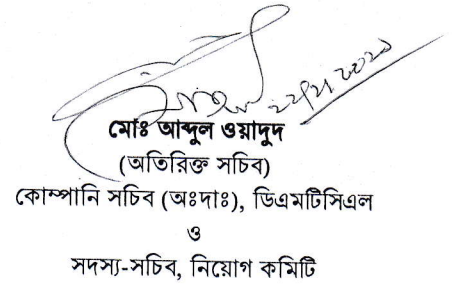 মোঃ আব্দুল ওয়াদুদ
(অতিরিক্ত সচিব)
কোম্পানি সচিব (অঃদাঃ), ডিএমটিসিএল
ও
সদস্য-সচিব, নিয়োগ কমিটি